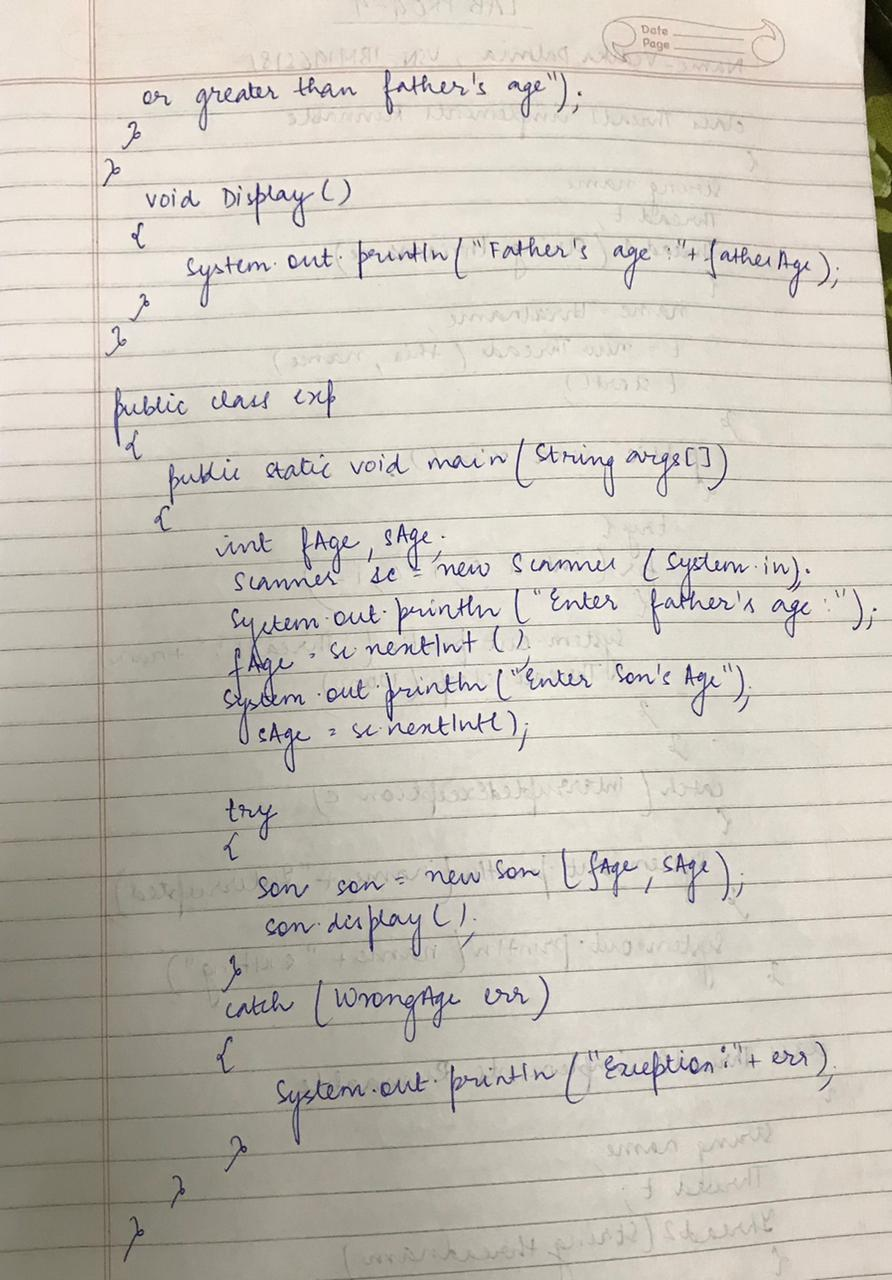 Date
Page
or greater than father's age");
}
}
void Display()
{
System.out.println("Father's age :"+ fatherAge);
}
}
public class exp
{
public static void main(String args[])
{
int fAge, sAge;
Scanner sc = new Scanner (System.in);
System.out.println ("Enter father's age :");
fAge = sc.nextInt();
System.out.println ("Enter Son's Age");
sAge = sc.nextInt();
try
{
Son son = new Son (fAge, sAge);
son.display();
}
catch (WrongAge err)
{
System.out.println ("Exception:"+ err);
}
}
}